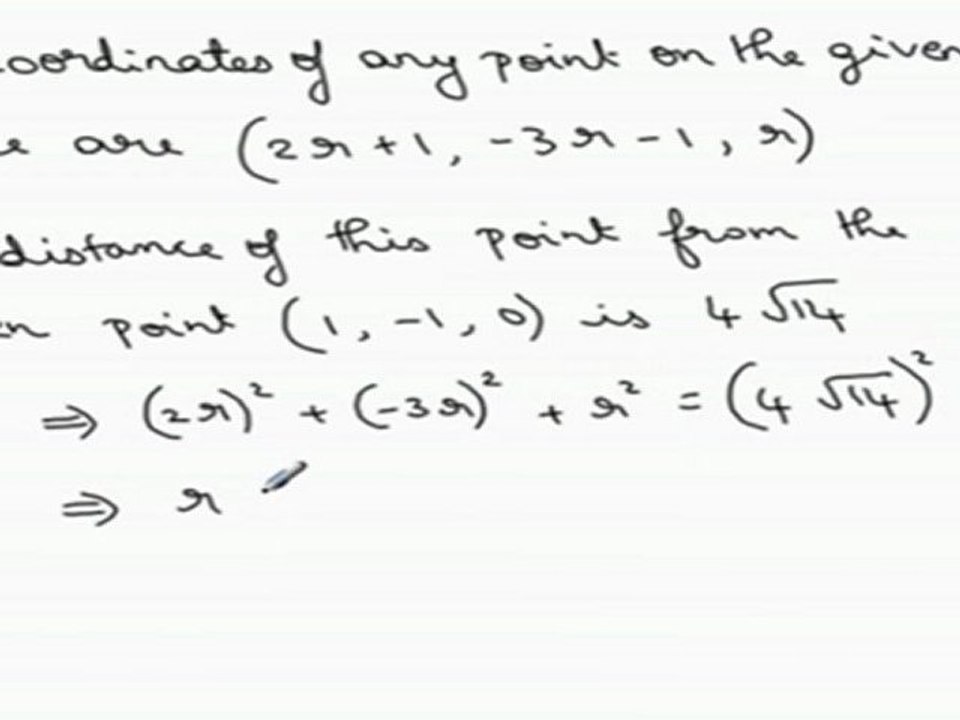 coordinates of any point on the given
are (2r+1, -3r-1, r)
distance of this point from the
point (1, -1, 0) is 4√14
⇒ (2r)² + (-3r)² + r² = (4√14)²
⇒ r